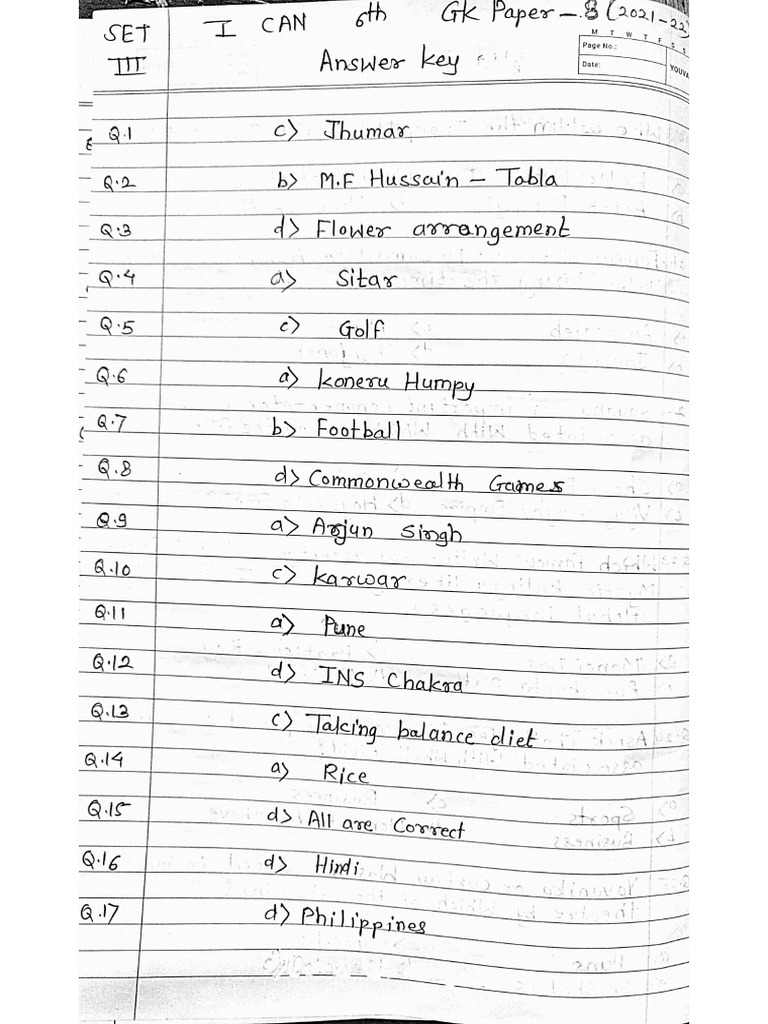 SET I CAN 6th GK Paper - 8 (2021-22)
III Answer key
M T W T F S S
Page No.:
Date:
YOUVA
Q.1 c) Jhumar
Q.2 b) M.F Hussain - Tabla
Q.3 d) Flower arrangement
Q.4 a) Sitar
Q.5 c) Golf
Q.6 a) Koneru Humpy
Q.7 b) Football
Q.8 d) Commonwealth Games
Q.9 a) Arjun Singh
Q.10 c) Karwar
Q.11 a) Pune
Q.12 d) INS Chakra
Q.13 c) Taking balance diet
Q.14 a) Rice
Q.15 d) All are Correct
Q.16 d) Hindi
Q.17 d) Philippines